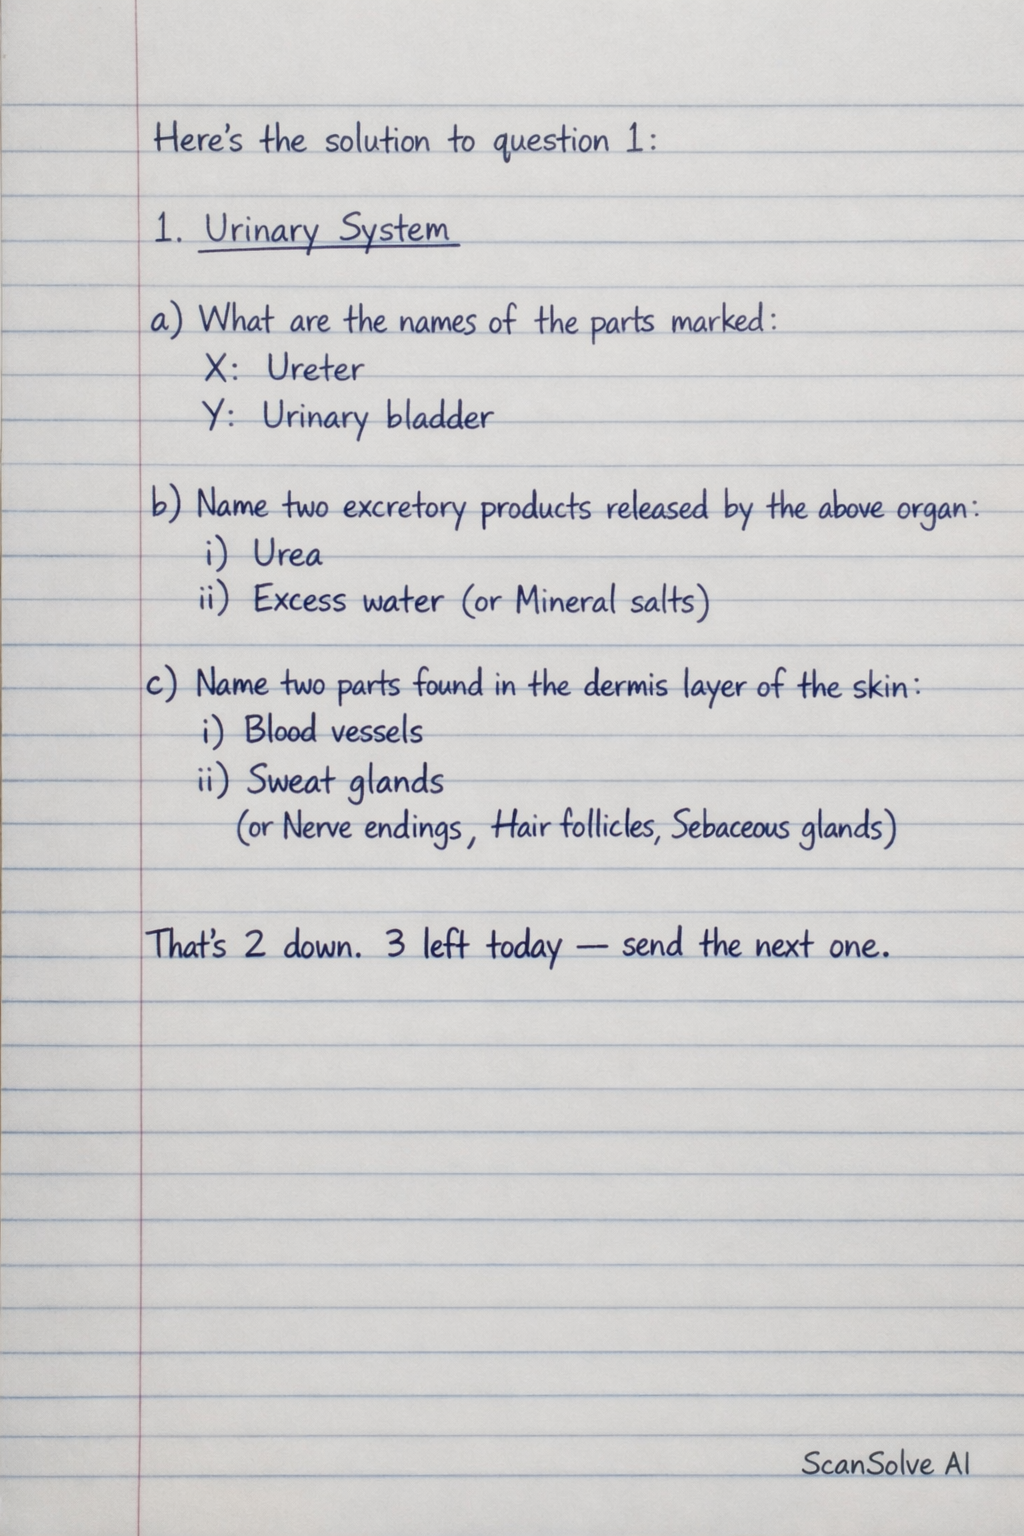 Here's the solution to question 1:
1. Urinary System
a) What are the names of the parts marked:
X: Ureter
Y: Urinary bladder
b) Name two excretory products released by the above organ:
i) Urea
ii) Excess water (or Mineral salts)
c) Name two parts found in the dermis layer of the skin:
i) Blood vessels
ii) Sweat glands
(or Nerve endings, Hair follicles, Sebaceous glands)
That's 2 down. 3 left today — send the next one.
ScanSolve AI